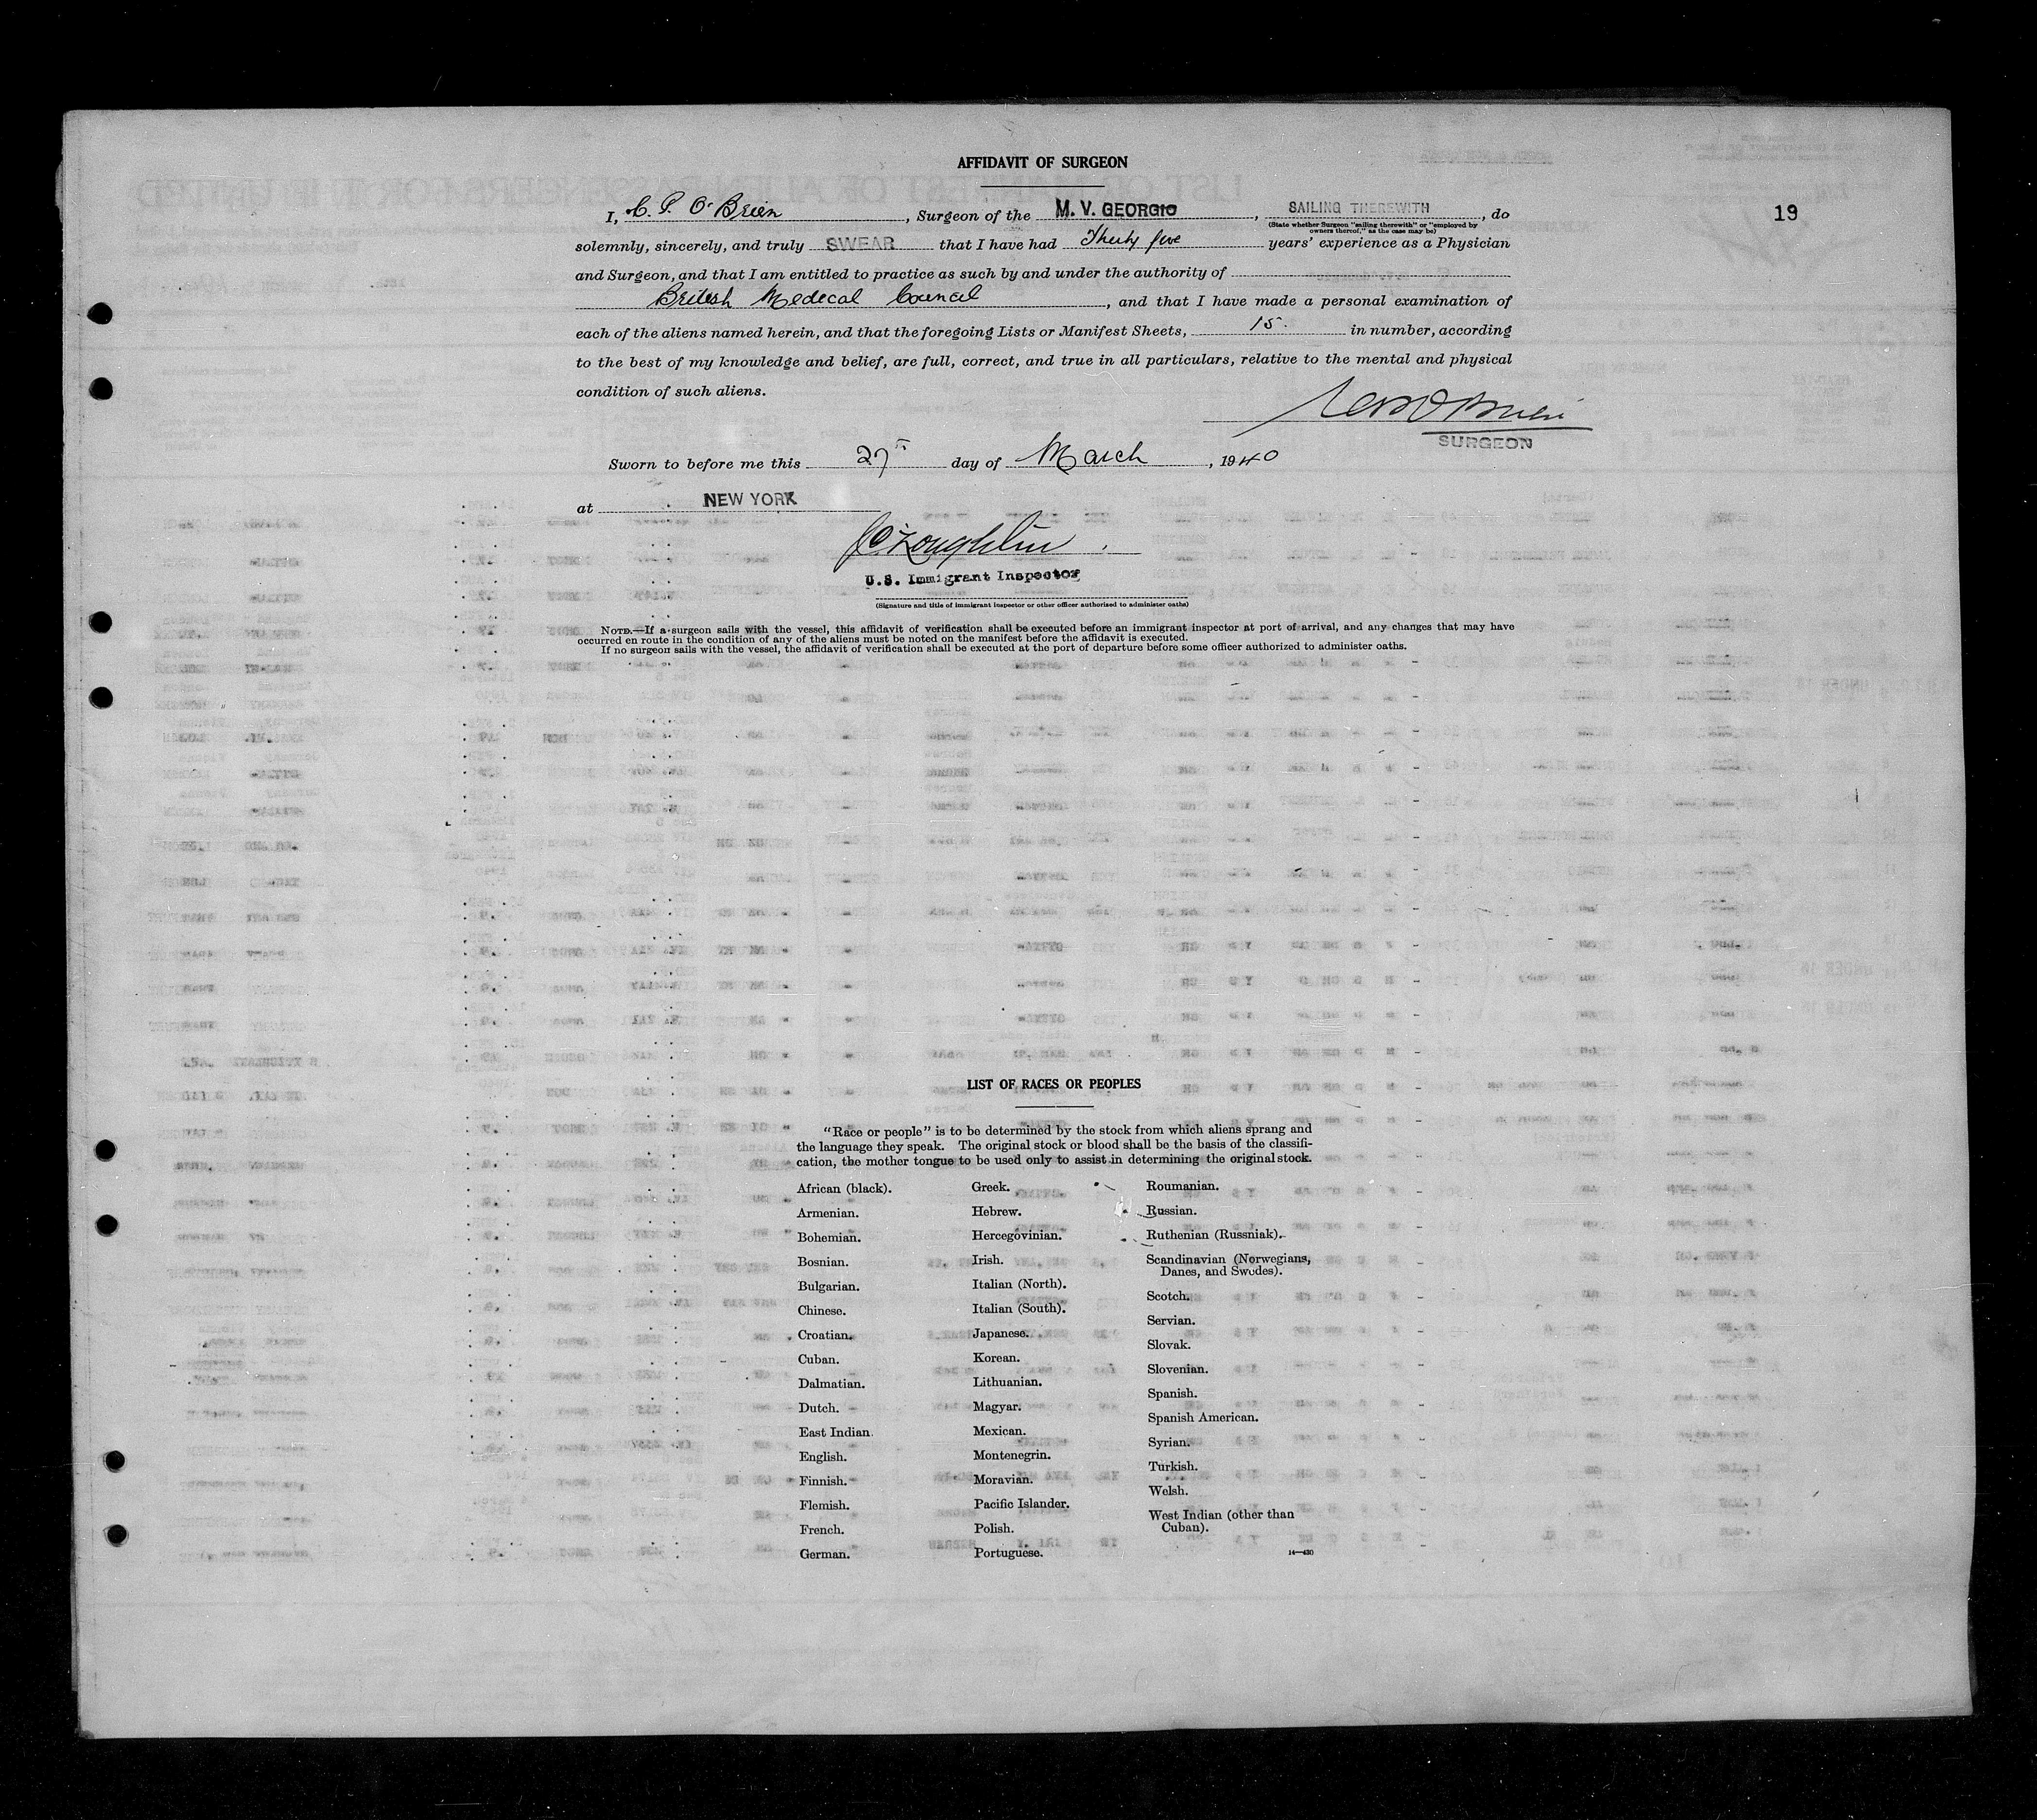 AFFIDAVIT OF SURGEON
I, C. P. O'Brien, Surgeon of the M. V. GEORGIC, SAILING THEREWITH, do
(State whether Surgeon "sailing therewith" or "employed by
owners thereof," as the case may be)
19
solemnly, sincerely, and truly SWEAR that I have had Thirty five years' experience as a Physician
and Surgeon, and that I am entitled to practice as such by and under the authority of
British Medical Council, and that I have made a personal examination of
each of the aliens named herein, and that the foregoing Lists or Manifest Sheets, 15. in number, according
to the best of my knowledge and belief, are full, correct, and true in all particulars, relative to the mental and physical
condition of such aliens.
SURGEON
Sworn to before me this 27th day of March, 1940
at NEW YORK
U.S. Immigrant Inspector
(Signature and title of immigrant inspector or other officer authorized to administer oaths)
NOTE.—If a surgeon sails with the vessel, this affidavit of verification shall be executed before an immigrant inspector at port of arrival, and any changes that may have
occurred en route in the condition of any of the aliens must be noted on the manifest before the affidavit is executed.
If no surgeon sails with the vessel, the affidavit of verification shall be executed at the port of departure before some officer authorized to administer oaths.
LIST OF RACES OR PEOPLES
"Race or people" is to be determined by the stock from which aliens sprang and
the language they speak. The original stock or blood shall be the basis of the classifi-
cation, the mother tongue to be used only to assist in determining the original stock.
African (black).
Armenian.
Bohemian.
Bosnian.
Bulgarian.
Chinese.
Croatian.
Cuban.
Dalmatian.
Dutch.
East Indian.
English.
Finnish.
Flemish.
French.
German.
Greek.
Hebrew.
Hercegovinian.
Irish.
Italian (North).
Italian (South).
Japanese.
Korean.
Lithuanian.
Magyar.
Mexican.
Montenegrin.
Moravian.
Pacific Islander.
Polish.
Portuguese.
Roumanian.
Russian.
Ruthenian (Russniak).
Scandinavian (Norwegians,
Danes, and Swedes).
Scotch.
Servian.
Slovak.
Slovenian.
Spanish.
Spanish American.
Syrian.
Turkish.
Welsh.
West Indian (other than
Cuban).
14—430